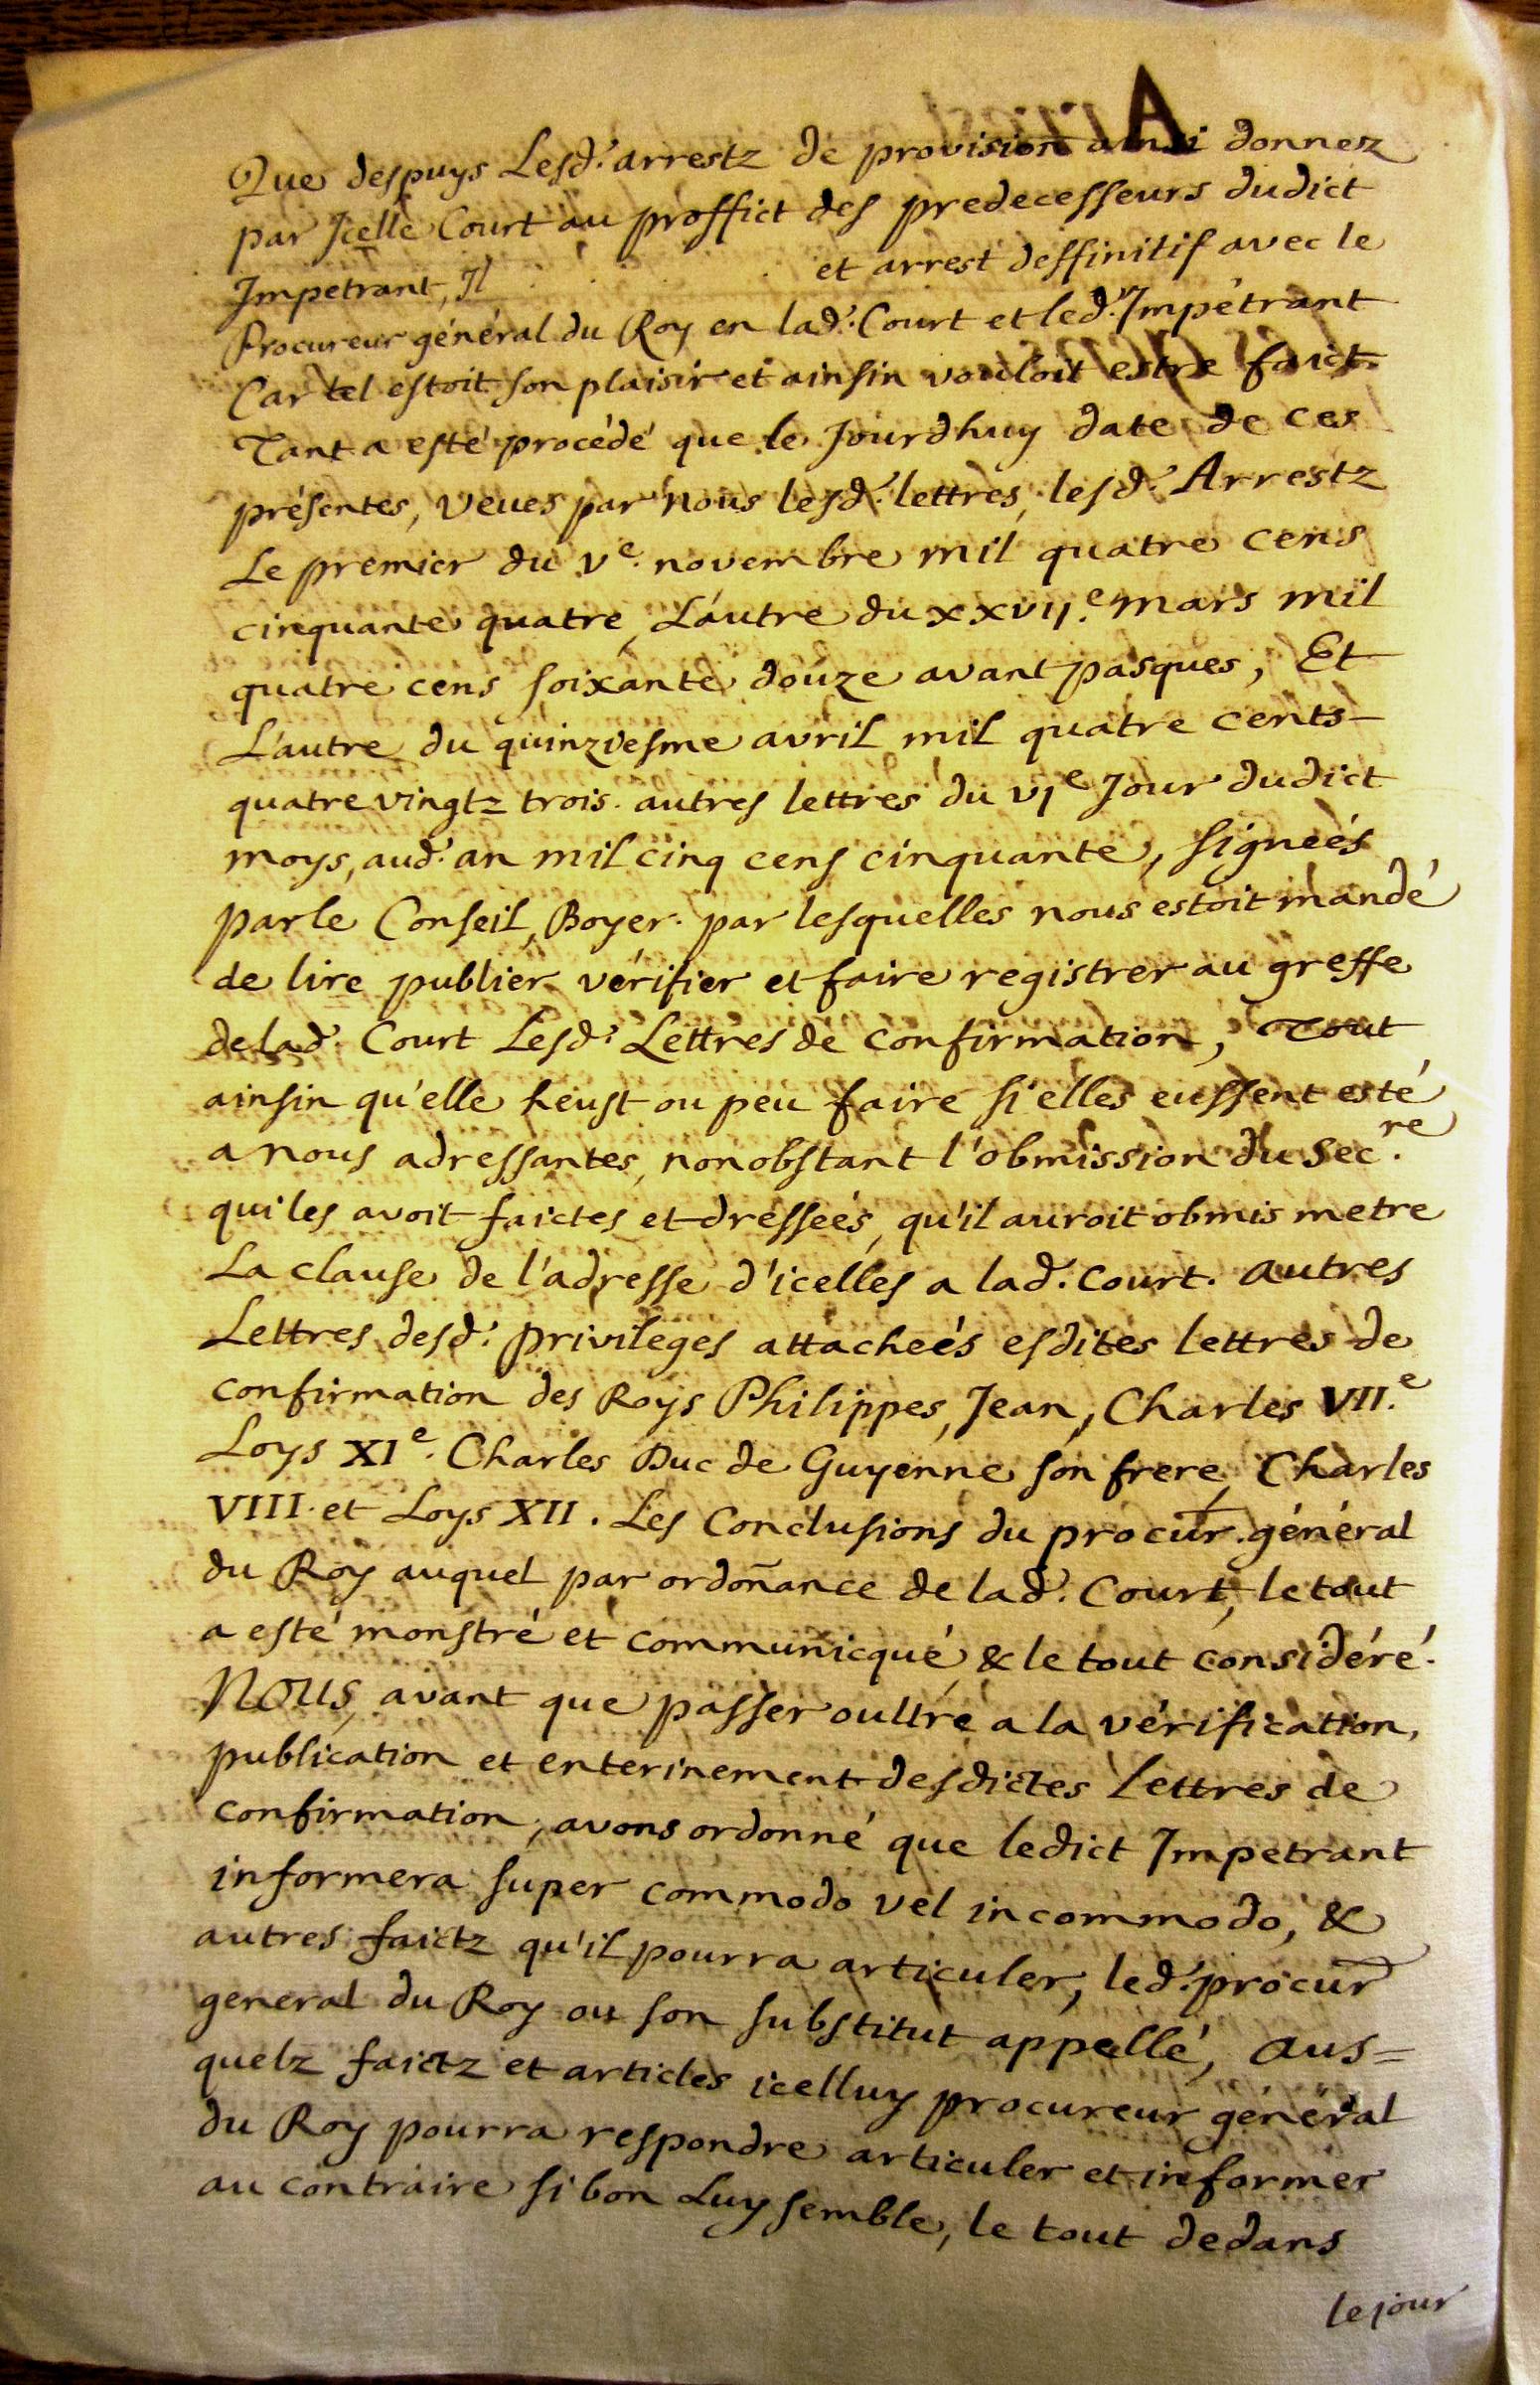 A
Que despuys Lesd. arrestz de provision ainsi donnez
par Icelle Court au proffict des predecesseurs dudict
Impetrant, Il et arrest deffinitif avec le
Procureur général du Roy en lad. Court et led. Impétrant
Car tel estoit son plaisir et ainsin vouloit estre faict.
Tant a esté procédé que le Jourdhuy date de ces
présentes, veues par Nous lesd. lettres, lesd. Arrestz
Le premier du Ve. novembre mil quatre cens
cinquante quatre, L'autre du xxvij.e mars mil
quatre cens soixante douze avant pasques, Et
L'autre du quinziesme avril mil quatre cents
quatre vingtz trois. autres lettres du vje Jour dudict
moys, aud. an mil cinq cens cinquante, signeés
par le Conseil, Boyer. par lesquelles nous estoit mandé
de lire publier vérifier et faire registrer au greffe
de lad. Court Lesd. Lettres de confirmation, Tout
ainsin qu'elle heust ou peu faire si elles eussent esté
a nous adressantes, nonobstant l'obmission du Sec.re
qui les avoit faictes et dresseés, qu'il auroit obmis metre
La clause de l'adresse d'icelles a lad. Court. autres
Lettres desd. privileges attacheés esdites lettres de
confirmation des Roys Philippes, Jean, Charles VII.e
Loys XIe. Charles Duc de Guyenne son frere, Charles
VIII. et Loys XII. Les Conclusions du procur. général
du Roy auquel par ordoñance de lad. Court, le tout
a esté monstré et communicqué, & le tout considéré.
NOUS, avant que passer oultre a la vérification,
publication et enterinement desdictes lettres de
confirmation, avons ordonné que ledict Impetrant
informera super commodo vel incommodo, &
autres faictz qu'il pourra articuler, led. procur
general du Roy ou son substitut appellé, aus=
quelz faictz et articles icelluy procureur général
du Roy pourra respondre articuler et informer
au contraire si bon Luy semble, le tout dedans
le jour